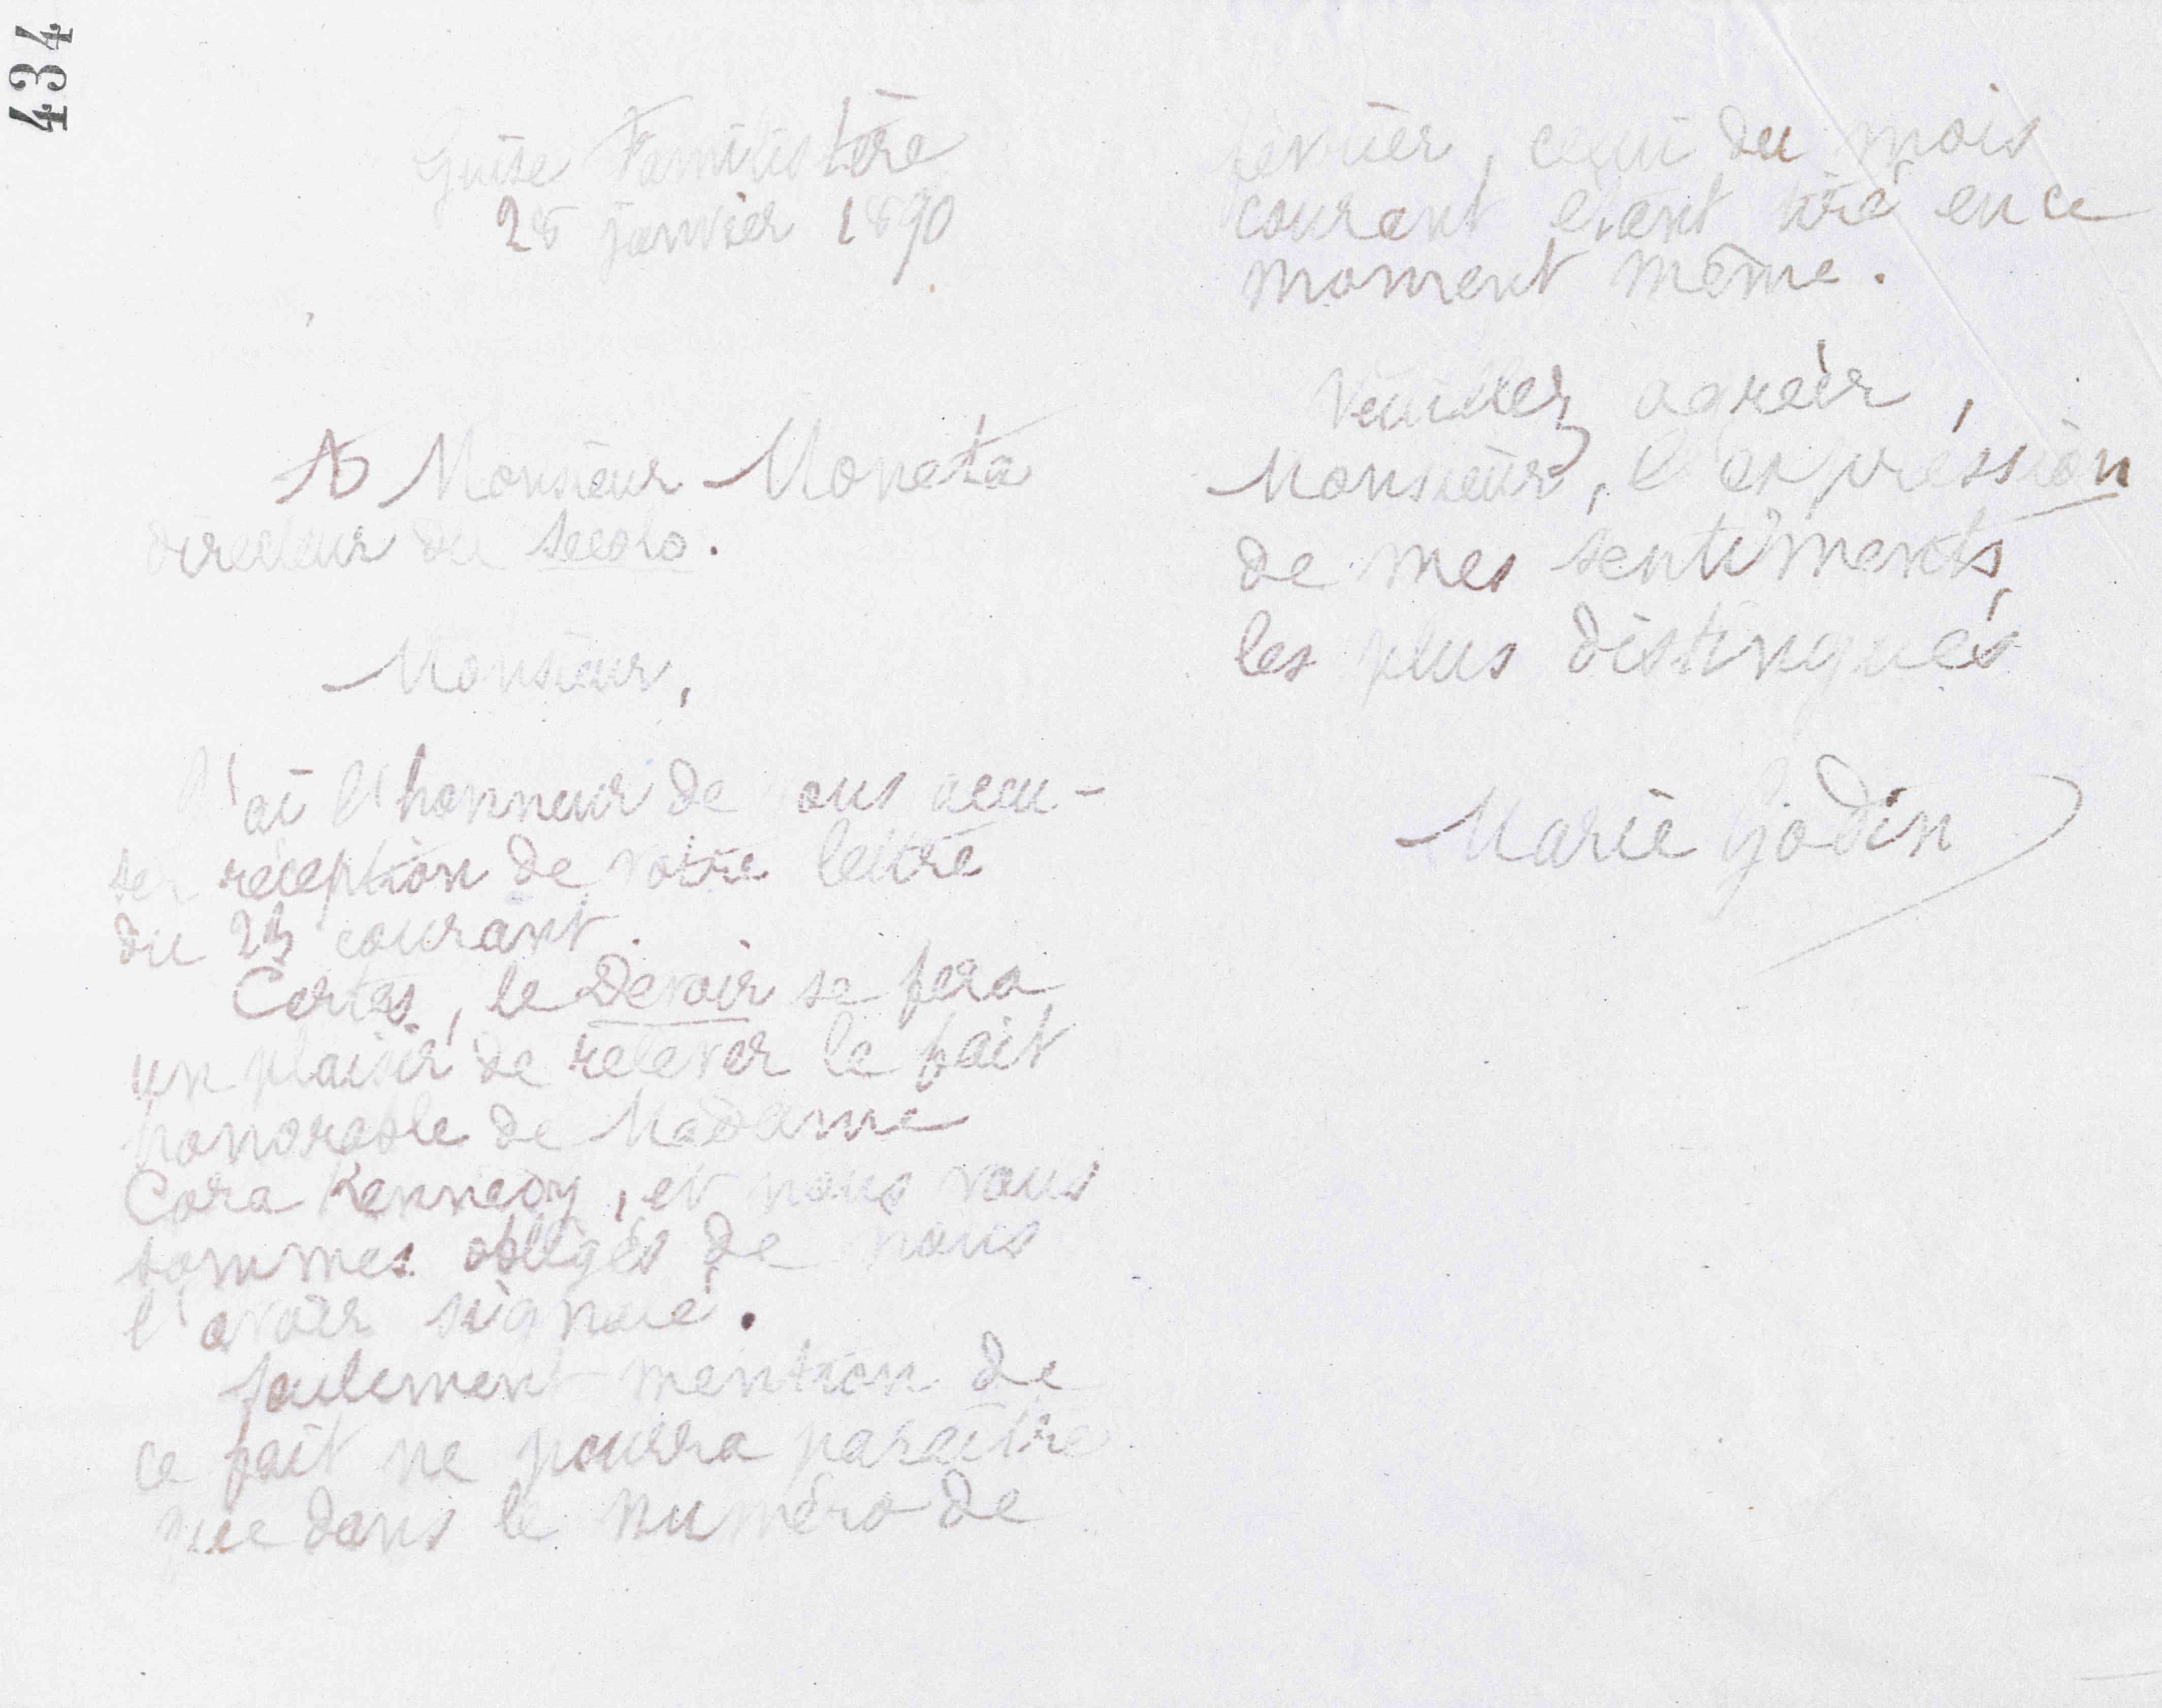 434
Guise Familistère
28 janvier 1890
A Monsieur Moneta
directeur du Secolo.
Monsieur,
J'ai l'honneur de vous accu-
ser réception de votre lettre
du courant.
Certes, le Devoir se fera
un plaisir de relever le fait
honorable de Madame
Cora Kennedy, et nous vous
sommes obligés de nous
l'avoir signalé.
Seulement mention de
ce fait ne pourra paraître
que dans le numéro de
février, celui du mois
courant étant tiré en ce
moment même.
Veuillez agréer,
Monsieur, l'expression
de mes sentiments
les plus distingués
Marie Godin